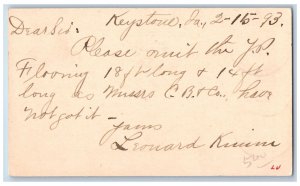 Keystone, Ia, 2-15-93.
Dear Sir:
Please omit the Y.P.
Flooring 18 ft long & 14 ft
long as Messrs C.B. & Co., have
not got it -
Yours
Leonard